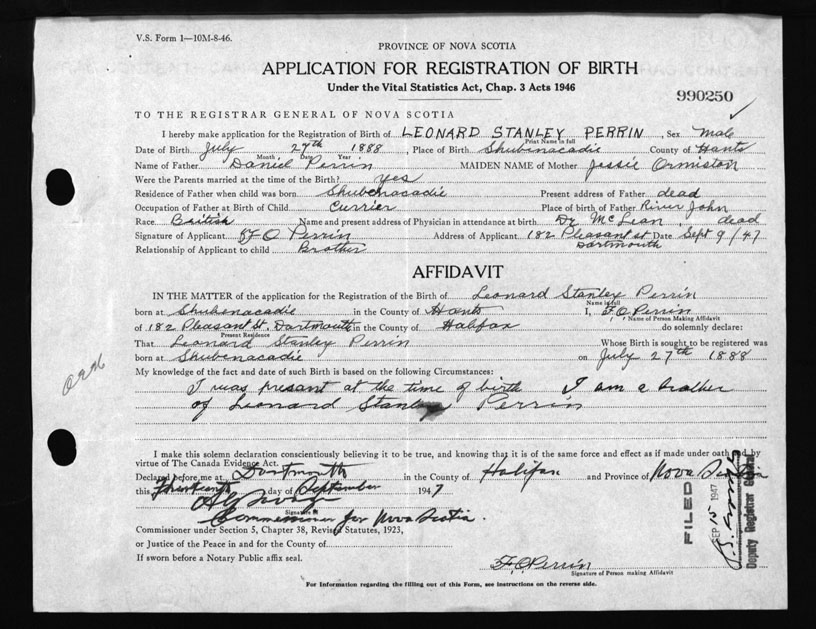 V.S. Form 1—10M-8-46.
PROVINCE OF NOVA SCOTIA
APPLICATION FOR REGISTRATION OF BIRTH
Under the Vital Statistics Act, Chap. 3 Acts 1946
990250
TO THE REGISTRAR GENERAL OF NOVA SCOTIA
I hereby make application for the Registration of Birth of LEONARD STANLEY PERRIN, Sex Male
Print Name in full
Date of Birth July 27th 1888, Place of Birth Shubenacadie County of Hants
Month Date Year
Name of Father Daniel Perrin MAIDEN NAME of Mother Jessie Ormiston
Were the Parents married at the time of the Birth? yes
Residence of Father when child was born Shubenacadie Present address of Father dead
Occupation of Father at Birth of Child Currier Place of birth of Father River John
Race British Name and present address of Physician in attendance at birth Dr McLean, dead
Signature of Applicant F O Perrin Address of Applicant 182 Pleasant st Date Sept 9/47
Dartmouth
Relationship of Applicant to child Brother
AFFIDAVIT
IN THE MATTER of the application for the Registration of the Birth of Leonard Stanley Perrin
Name in full
born at Shubenacadie in the County of Hants I, F.O. Perrin
Name of Person Making Affidavit
of 182 Pleasant St. Dartmouth in the County of Halifax do solemnly declare:
Present Residence
That Leonard Stanley Perrin Whose Birth is sought to be registered was
born at Shubenacadie on July 27th 1888
My knowledge of the fact and date of such Birth is based on the following Circumstances:
I was presant at the time of birth I am a brother
of Leonard Stanley Perrin
I make this solemn declaration conscientiously believing it to be true, and knowing that it is of the same force and effect as if made under oath and by
virtue of The Canada Evidence Act.
Declared before me at Dartmouth in the County of Halifax and Province of Nova Scotia
this Thirteenth day of September 1947
Signature
Commissioner for Nova Scotia.
Commissioner under Section 5, Chapter 38, Revised Statutes, 1923,
or Justice of the Peace in and for the County of
If sworn before a Notary Public affix seal.
F.O. Perrin
Signature of Person making Affidavit
For Information regarding the filling out of this Form, see instructions on the reverse side.
FILED
SEP 15 1947
Deputy Registrar General